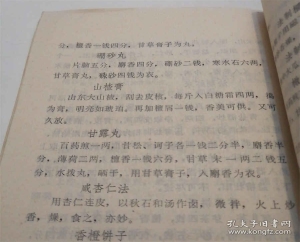 分，檀香一钱四分，甘草膏子为丸。
硼砂丸
片脑五分，麝香四分，硼砂二钱，寒水石六两，
甘草膏丸，硃砂四钱为衣。
山楂膏
山东大山楂，刮去皮核，每斤入白糖霜四两，捣
为膏，明亮如琥珀，再加檀屑一钱，香美可供，又可
久放。
甘露丸
百药煎一两，甘松、诃子各一钱二分半，麝香半
分，薄荷二两，檀香一钱六分，甘草末一两二钱五
分，水泼丸，晒干，用甘草膏子，入麝香为衣。
咸杏仁法
用杏仁连皮，以秋石和汤作卤，微拌，火上炒
香，燥，食之，亦妙。
香橙饼子